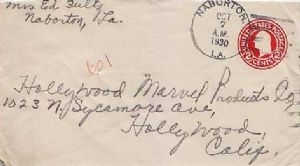 Mrs Ed Sully
Naborton, La.
NABORTON
OCT
7
A.M.
1930
LA.
UNITED STATES POSTAGE
2 CENTS 2
601
Hollywood Marvel Products Co
1023 N. Sycamore Ave,
Hollywood,
Calif.